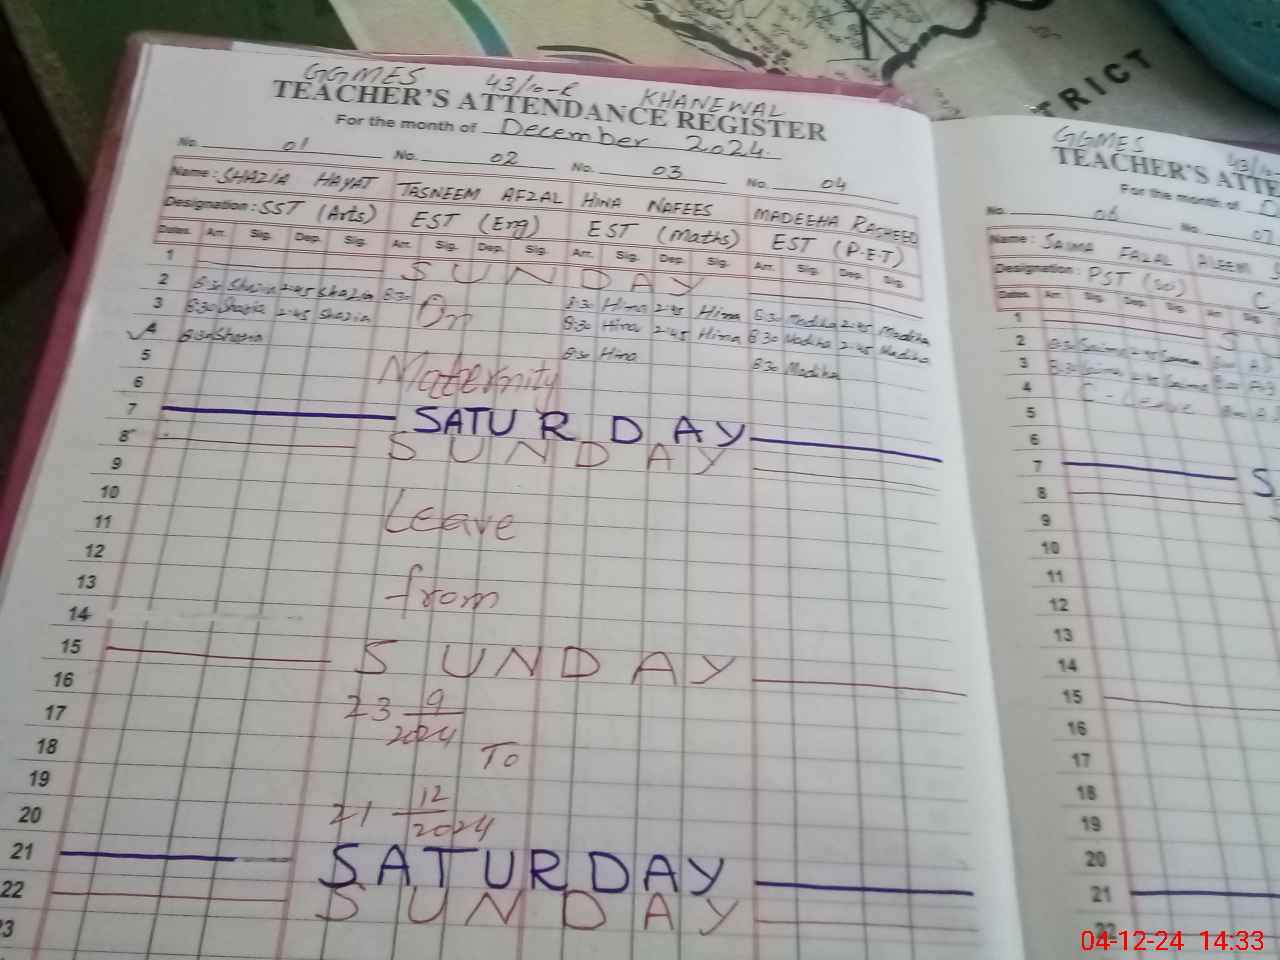 GGMES 43/10-R KHANEWAL
TEACHER'S ATTENDANCE REGISTER
For the month of December 2024.
No. 01 No. 02 No. 03 No. 04
Name: SHAZIA HAYAT TASNEEM AFZAL HINA NAFEES MADEEHA RASHEED
Designation: SST (Arts) EST (Eng) EST (Maths) EST (P.E.T)
Dates Arr. Sig. Dep. Sig. Arr. Sig. Dep. Sig. Arr. Sig. Dep. Sig. Arr. Sig. Dep. Sig.
1 SUNDAY
2 8:30 Shazia 2:45 Shazia 8:30 On 8:30 Hina 2:45 Hina 8:30 Madiha 2:45 Madiha
3 8:30 Shazia 2:45 Shazia 8:30 Hina 2:45 Hina 8:30 Madiha 2:45 Madiha
4 8:30 Shazia 8:30 Hina 8:30 Madiha
5
6 Maternity
7 SATURDAY
8 SUNDAY
9
10
11 Leave
12
13 from
14
15 SUNDAY
16
17 23 9/2024
18 To
19
20 21 12/2024
21 SATURDAY
22 SUNDAY
23
GGMES 43/10-
TEACHER'S ATTE
For the month of D
No. 06 No. 07
Name: SAIMA FAZAL
Designation: PST (Sci) C
Dates Arr. Sig. Dep. Sig. Arr. Sig.
1 S
2 8:30 Saima 2:45 Saima
3 8:30 Saima 2:45 Saima
4 C - Leave
5
6
7 S
8
9
10
11
12
13
14
15
16
17
18
19
20
21
22
TRICT
04-12-24 14:33